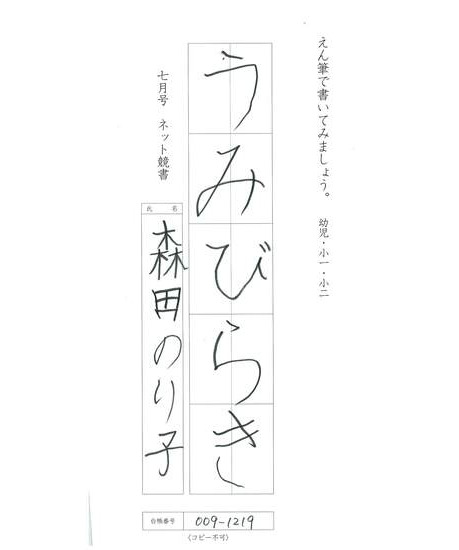 えん筆で書いてみましょう。 幼児・小一・小二
うみびらき
七月号 ネット競書
氏名
森田のり子
会員番号 009-1219
(コピー不可)